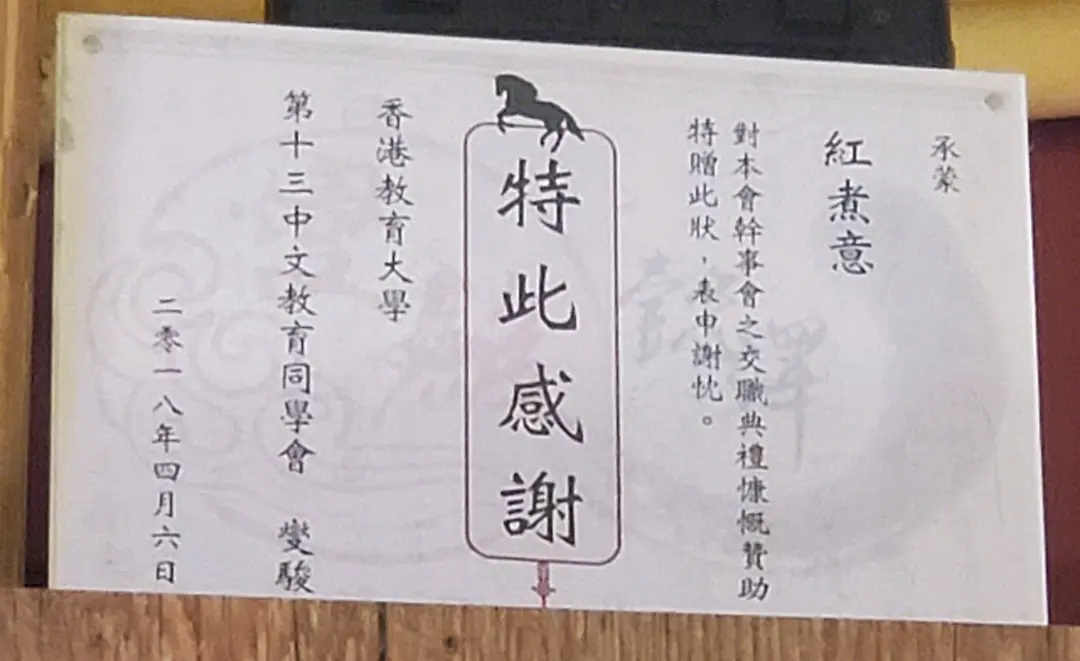 承蒙
紅煮意
對本會幹事會之交職典禮慷慨贊助
特贈此狀，表申謝忱。
特此感謝
香港教育大學
第十三中文教育同學會　燮駿
二零一八年四月六日